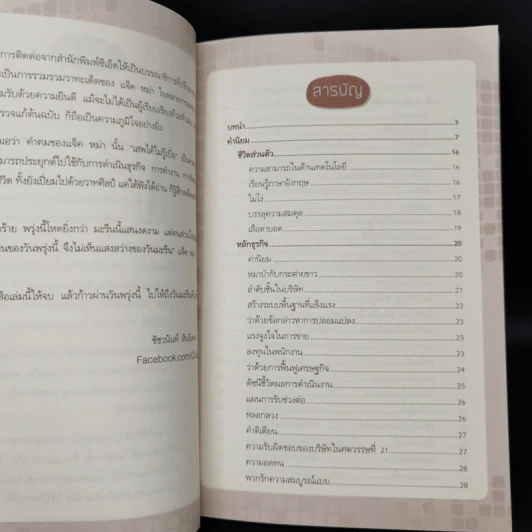 การติดต่อจากสำนักพิมพ์ซีเอ็ดให้เป็นบรรณาธิการต้นฉบับ
เป็นการรวมรวมวาทะเด็ดของ แจ็ค หม่า ในหลาย
รับด้วยความยินดี แม้จะไม่ได้เป็นผู้เรียบเรียงด้วยตัวเอง
รวจแก้ต้นฉบับ ก็ถือเป็นความภูมิใจอย่างยิ่ง
อว่า คำคมของแจ็ค หม่า นั้น "เสพได้ไม่รู้เบื่อ" เป็น
มารถประยุกต์ไปใช้กับการดำเนินธุรกิจ การทำงาน
ชีวิต ทั้งยังเปี่ยมไปด้วยวาทศิลป์ แต่ได้ฟังได้อ่าน ก็รู้สึก
ร้าย พรุ่งนี้โหดยิ่งกว่า มะรืนนี้แสนงดงาม แต่คนส่วนใหญ่
นของวันพรุ่งนี้ จึงไม่เห็นแสงสว่างของวันมะรืน" แจ็ค
สือเล่มนี้ให้จบ แล้วก้าวผ่านวันพรุ่งนี้ ไปให้ถึงวันมะรืน
ชัชวนันท์ สันธิเดช
Facebook.com/Cl
สารบัญ
บทนำ 3
คำนิยม 7
ชีวิตส่วนตัว 16
ความสามารถในด้านเทคโนโลยี 16
เรียนรู้ภาษาอังกฤษ 16
ไม่โง่ 17
บรรลุความสมดุล 18
เสือตาบอด 19
หลักธุรกิจ 20
ค่านิยม 20
หมาป่ากับกระต่ายขาว 20
ลำดับชั้นในบริษัท 21
สร้างระบบพื้นฐานที่แข็งแรง 22
ว่าด้วยข้อกล่าวหาการปลอมแปลง 23
แรงจูงใจในการขาย 23
ลงทุนในพนักงาน 23
ว่าด้วยการฟื้นฟูเศรษฐกิจ 24
ดัชนีชี้วัดผลการดำเนินงาน 25
แผนการรับช่วงต่อ 26
หลอกลวง 26
คำติเตียน 27
ความรับผิดชอบของบริษัทในศตวรรษที่ 21 27
ความอดทน 28
พวกรักความสมบูรณ์แบบ 28